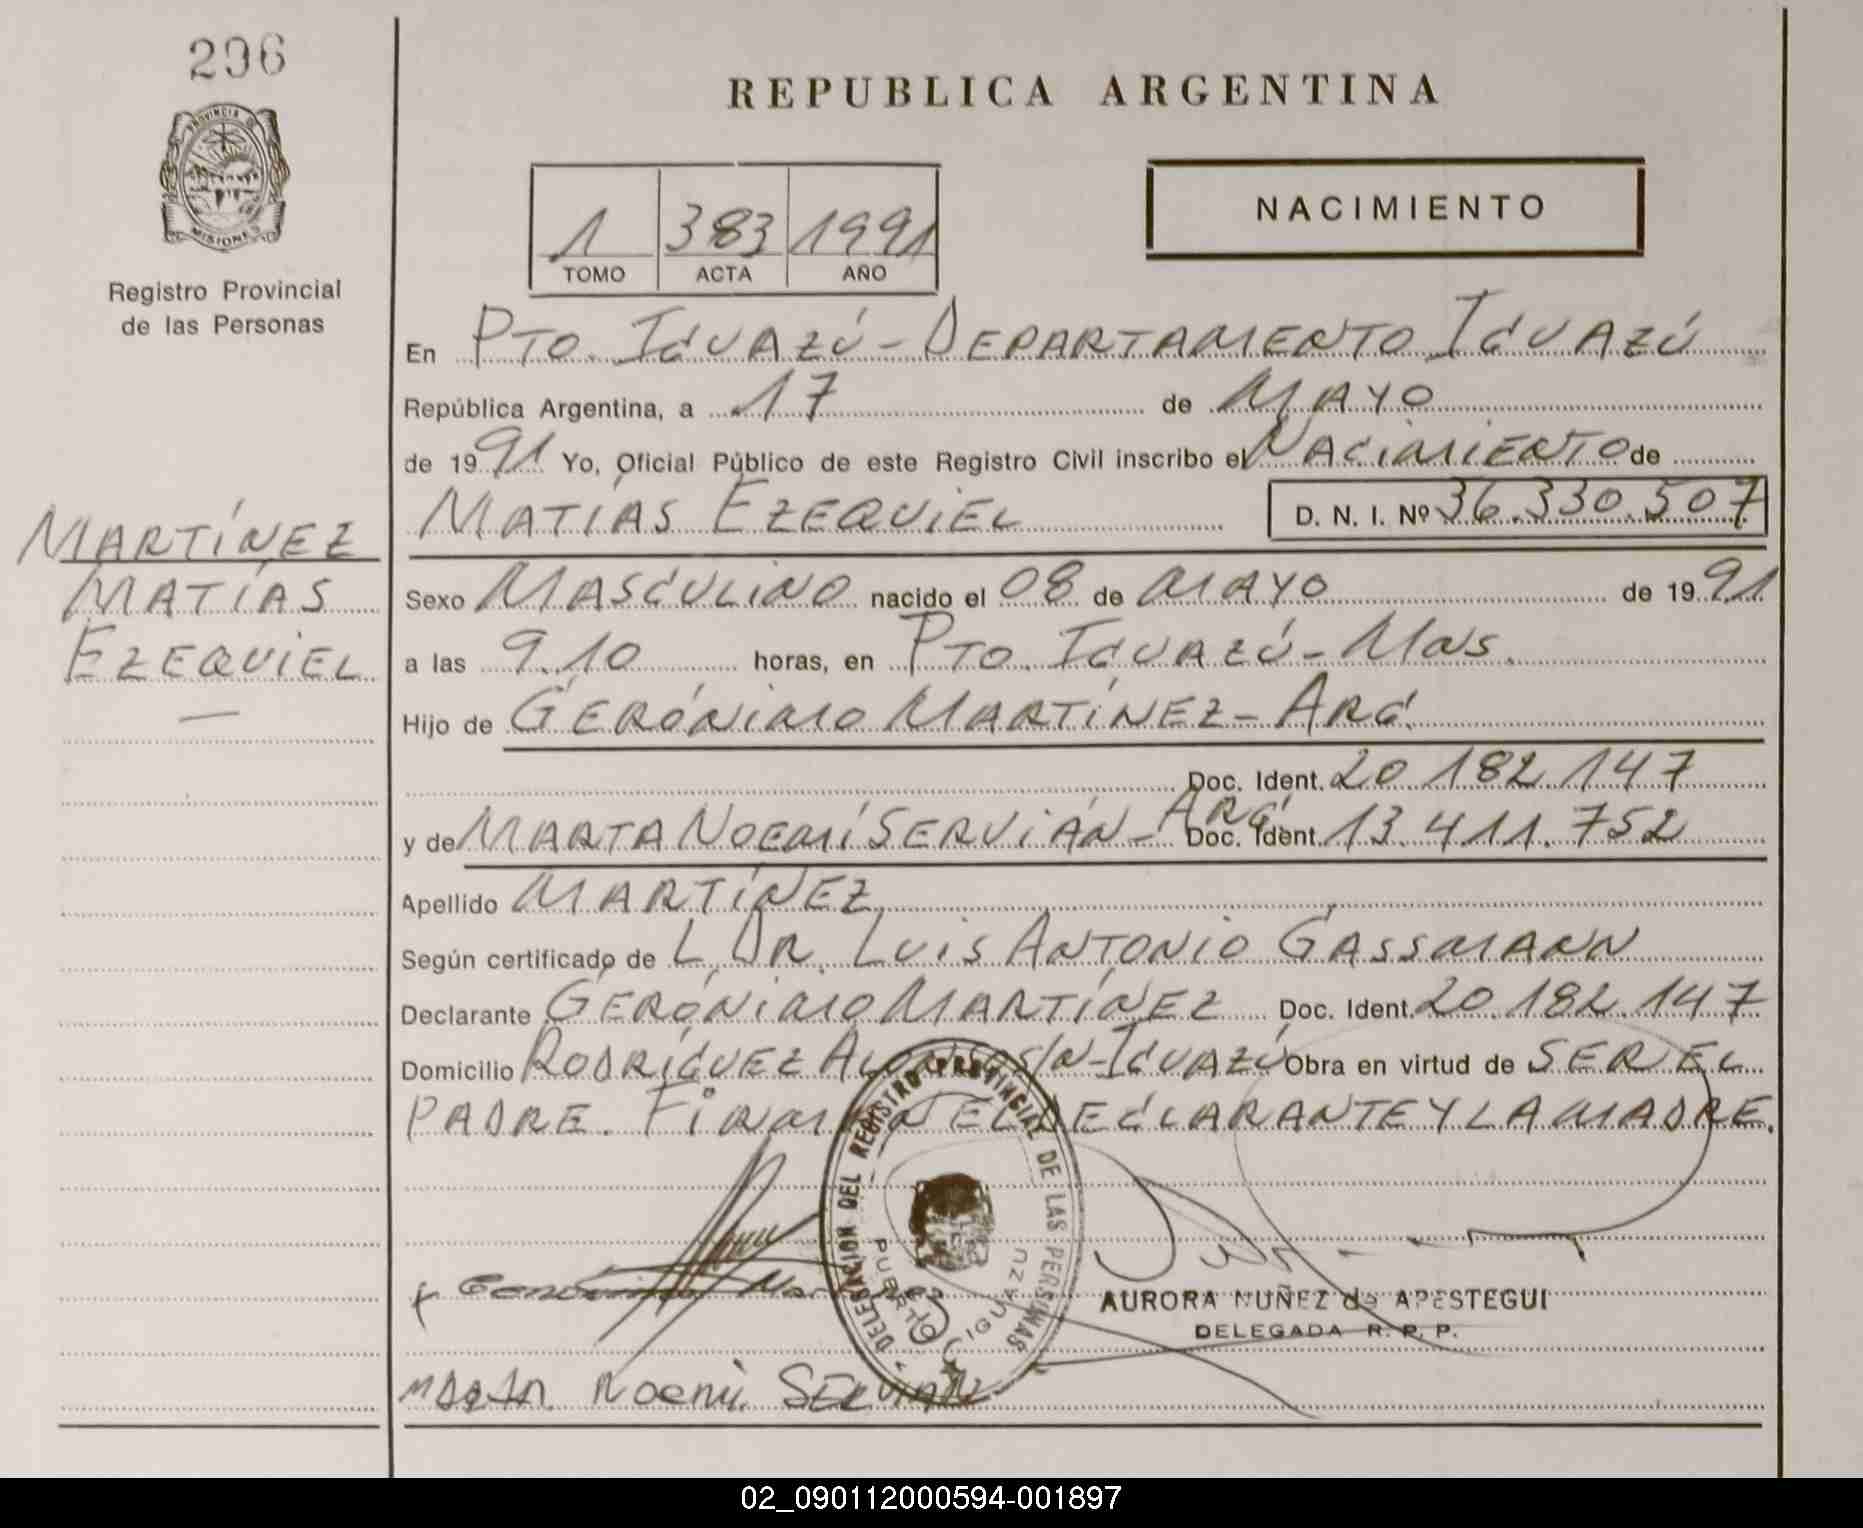 296
PROVINCIA DE
MISIONES
Registro Provincial
de las Personas
MARTÍNEZ
MATÍAS
EZEQUIEL
REPUBLICA ARGENTINA
1 383 1991
TOMO ACTA AÑO
NACIMIENTO
En PTO. IGUAZÚ - DEPARTAMENTO IGUAZÚ
República Argentina, a 17 de MAYO
de 1991 Yo, Oficial Público de este Registro Civil inscribo el NACIMIENTO de
MATÍAS EZEQUIEL D. N. I. Nº 36.330.507
Sexo MASCULINO nacido el 08 de MAYO de 1991
a las 9.10 horas, en PTO. IGUAZÚ - Mns.
Hijo de GERÓNIMO MARTÍNEZ - ARG.
Doc. Ident. 20.182.147
y de MARTA NOEMÍ SERVIÁN - ARG. Doc. Ident. 13.411.752
Apellido MARTÍNEZ
Según certificado de L. DR. LUIS ANTONIO GASSMANN
Declarante GERÓNIMO MARTÍNEZ Doc. Ident. 20.182.147
Domicilio RODRÍGUEZ S/N - IGUAZÚ Obra en virtud de SER EL
PADRE. FIRMAN EL DECLARANTE Y LA MADRE.
DELEGACION DEL REGISTRO PROVINCIAL DE LAS PERSONAS
PUERTO IGUAZU
AURORA NUÑEZ de APESTEGUI
DELEGADA R. P. P.
MARTA Noemi SERVIAN
02_090112000594-001897